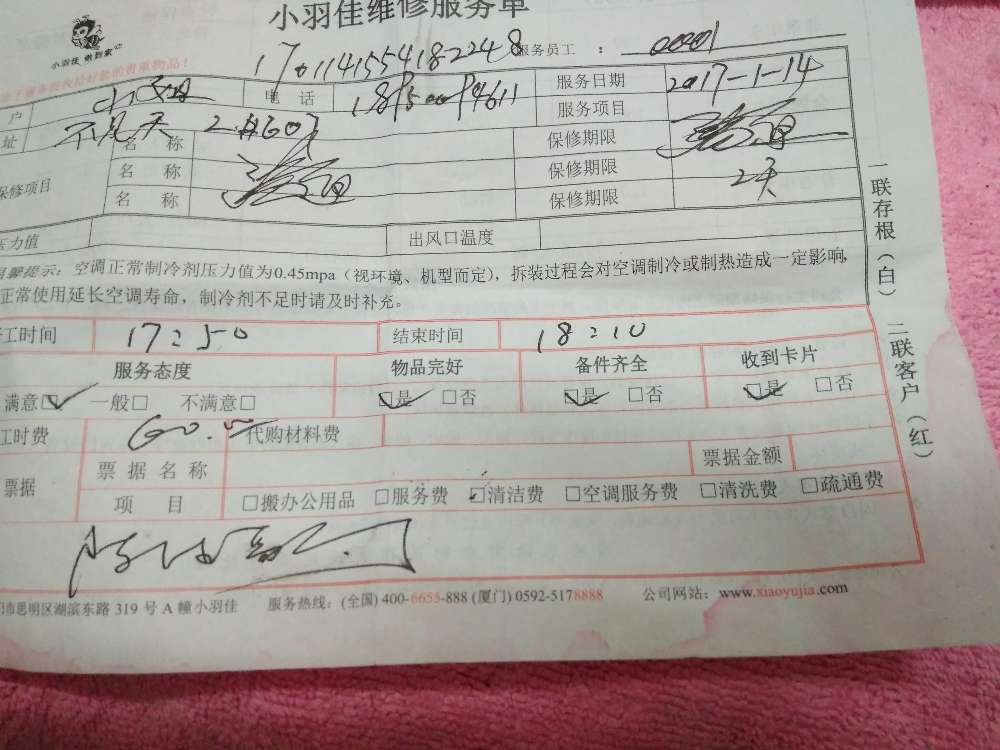 小羽佳维修服务单
小羽佳 做到家
1701141554182248 服务员工 ： 00001
户 电 话 服务日期 2017-1-14
址 名 称 服务项目
保修期限
保修项目 名 称 保修期限
名 称 保修期限 2天
压力值 出风口温度
温馨提示：空调正常制冷剂压力值为0.45mpa（视环境、机型而定），拆装过程会对空调制冷或制热造成一定影响,
正常使用延长空调寿命，制冷剂不足时请及时补充。
工时间 17:50 结束时间 18:10
服务态度 物品完好 备件齐全 收到卡片
满意□ 一般□ 不满意□ □是 □否 □是 □否 □是 □否
工时费 60.00 代购材料费
票据 票 据 名 称 票据金额
项 目 □搬办公用品 □服务费 □清洁费 □空调服务费 □清洗费 □疏通费
门市思明区湖滨东路 319 号 A 幢小羽佳 服务热线：(全国) 400-6655-888 (厦门) 0592-5178888 公司网站：www.xiaoyujia.com
一联存根（白）
二联客户（红）